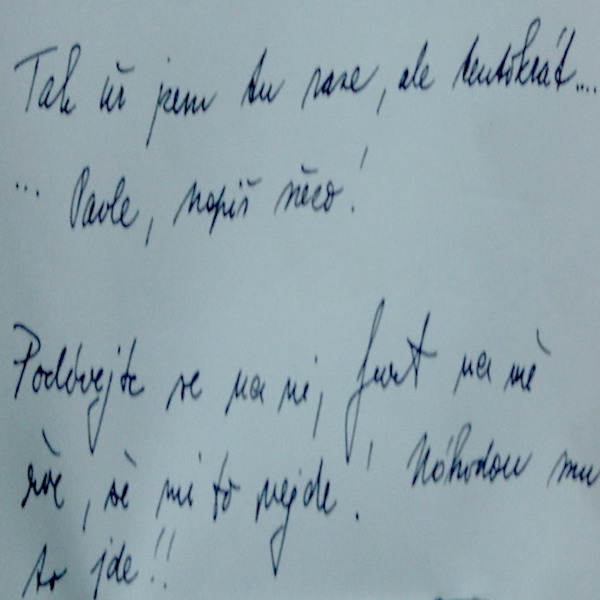 Tak už jsem tu zase, ale tentokrát....
... Pavle, napiš něco!
Podívejte se na ni, furt na mě
řve, že mi to nejde! Náhodou mu
to jde!!